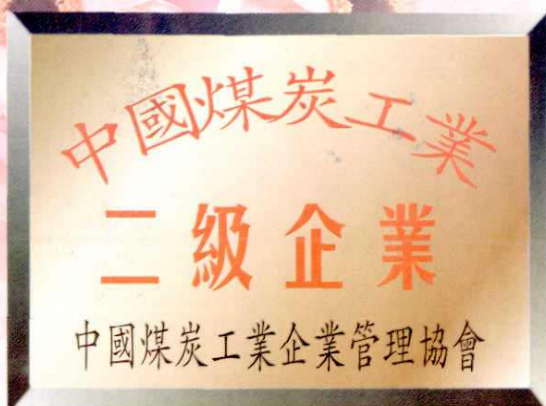 中國煤炭工業
二級企業
中國煤炭工業企業管理協會